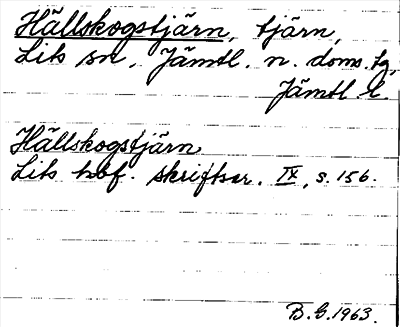 Hällskogstjärn, tjärn,
Lits sn, Jämtl. n. doms.tg,
Jämtl. l.
Hällskogstjärn.
Lits hbf. skriftser. IX, s. 156.
B.G.1963.